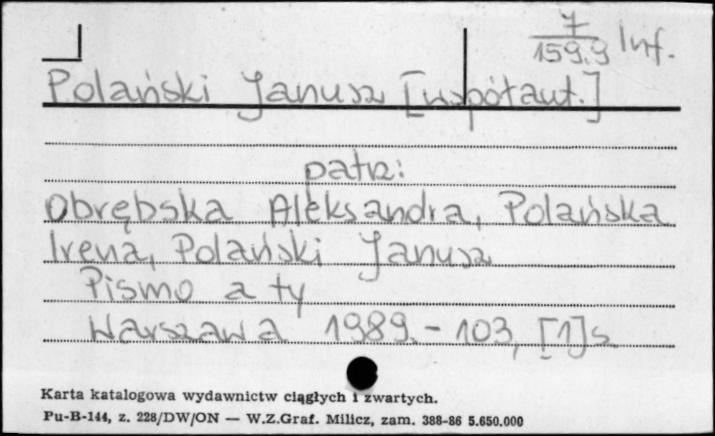 7
159.9 Inf.
Polański Janusz [współaut.]
patrz:
Obrębska Aleksandra, Polańska
Irena, Polański Janusz
Pismo a ty
Warszawa 1989. - 103, [1] s.
Karta katalogowa wydawnictw ciągłych i zwartych.
Pu-B-144, z. 228/DW/ON — W.Z.Graf. Milicz, zam. 388-86 5.650.000